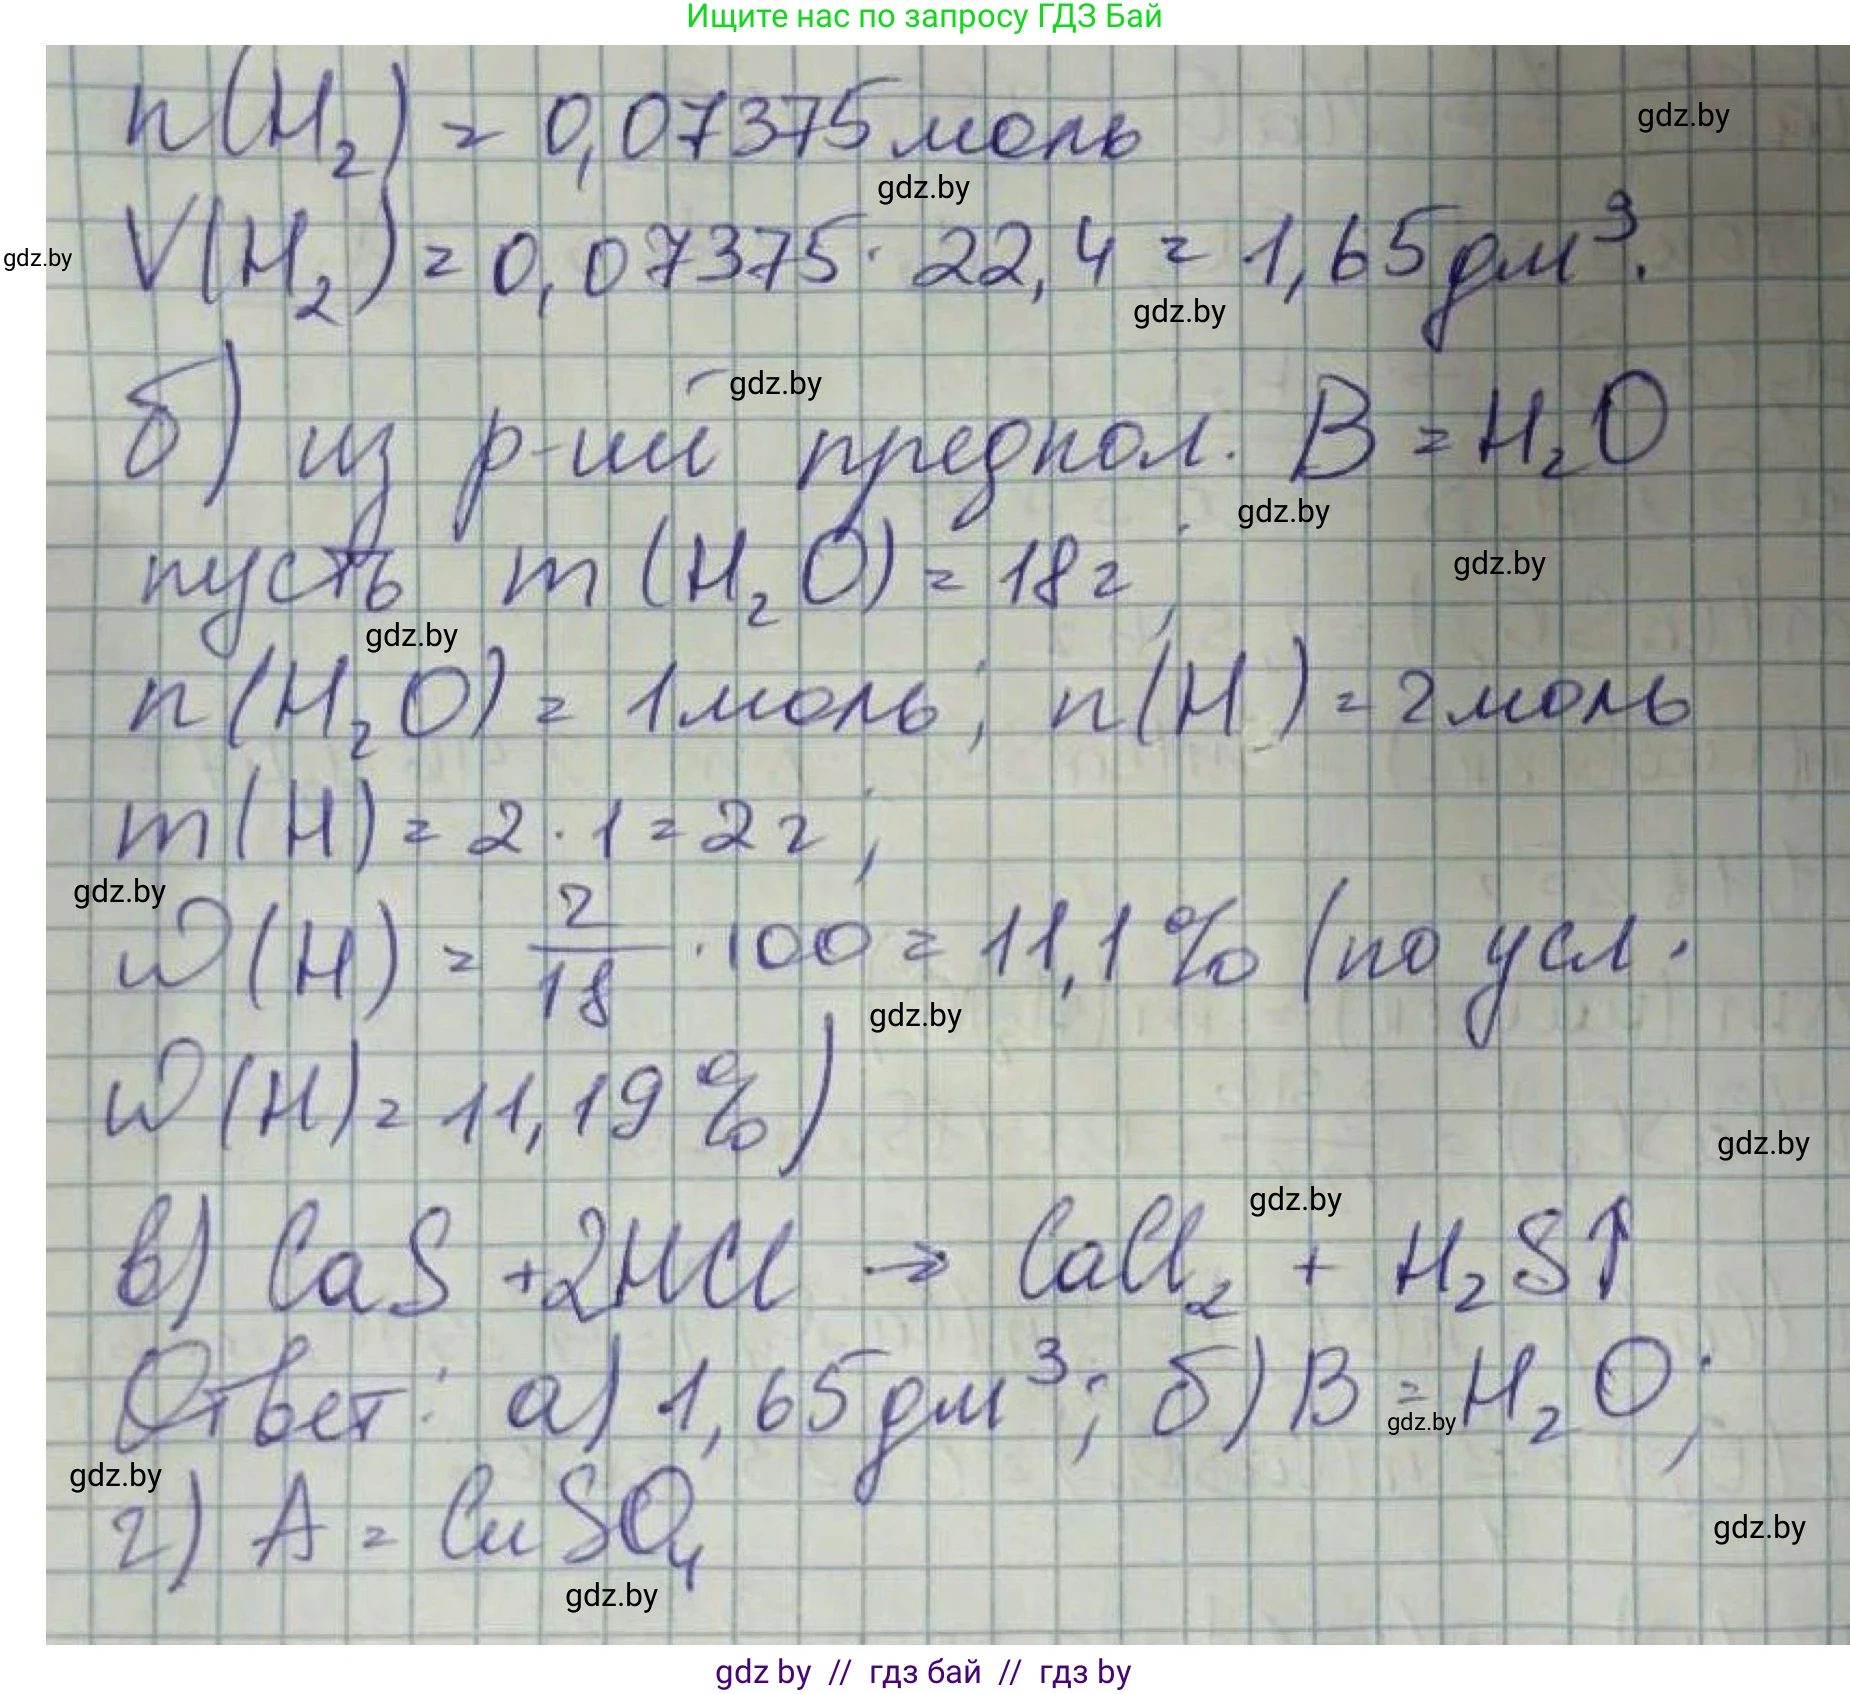 Ищите нас по запросу ГДЗ Бай
n(H₂) = 0,07375 моль
gdz.by
gdz.by
V(H₂) = 0,07375 · 22,4 = 1,65 дм³.
gdz.by
gdz.by
gdz.by
б) из р-ий предпол. B = H₂O
gdz.by
пусть m (H₂O) = 18 г;
gdz.by
gdz.by
n(H₂O) = 1 моль; n(H) = 2 моль
m(H) = 2 · 1 = 2 г;
gdz.by
w(H) = 2/18 · 100 = 11,1 % (по усл.
gdz.by
w(H) = 11,19 %)
gdz.by
gdz.by
в) CaS + 2HCl → CaCl₂ + H₂S↑
Ответ: а) 1,65 дм³; б) B = H₂O;
gdz.by
gdz.by
г) A = CuSO₄
gdz.by
gdz.by
gdz by // гдз бай // гдз by